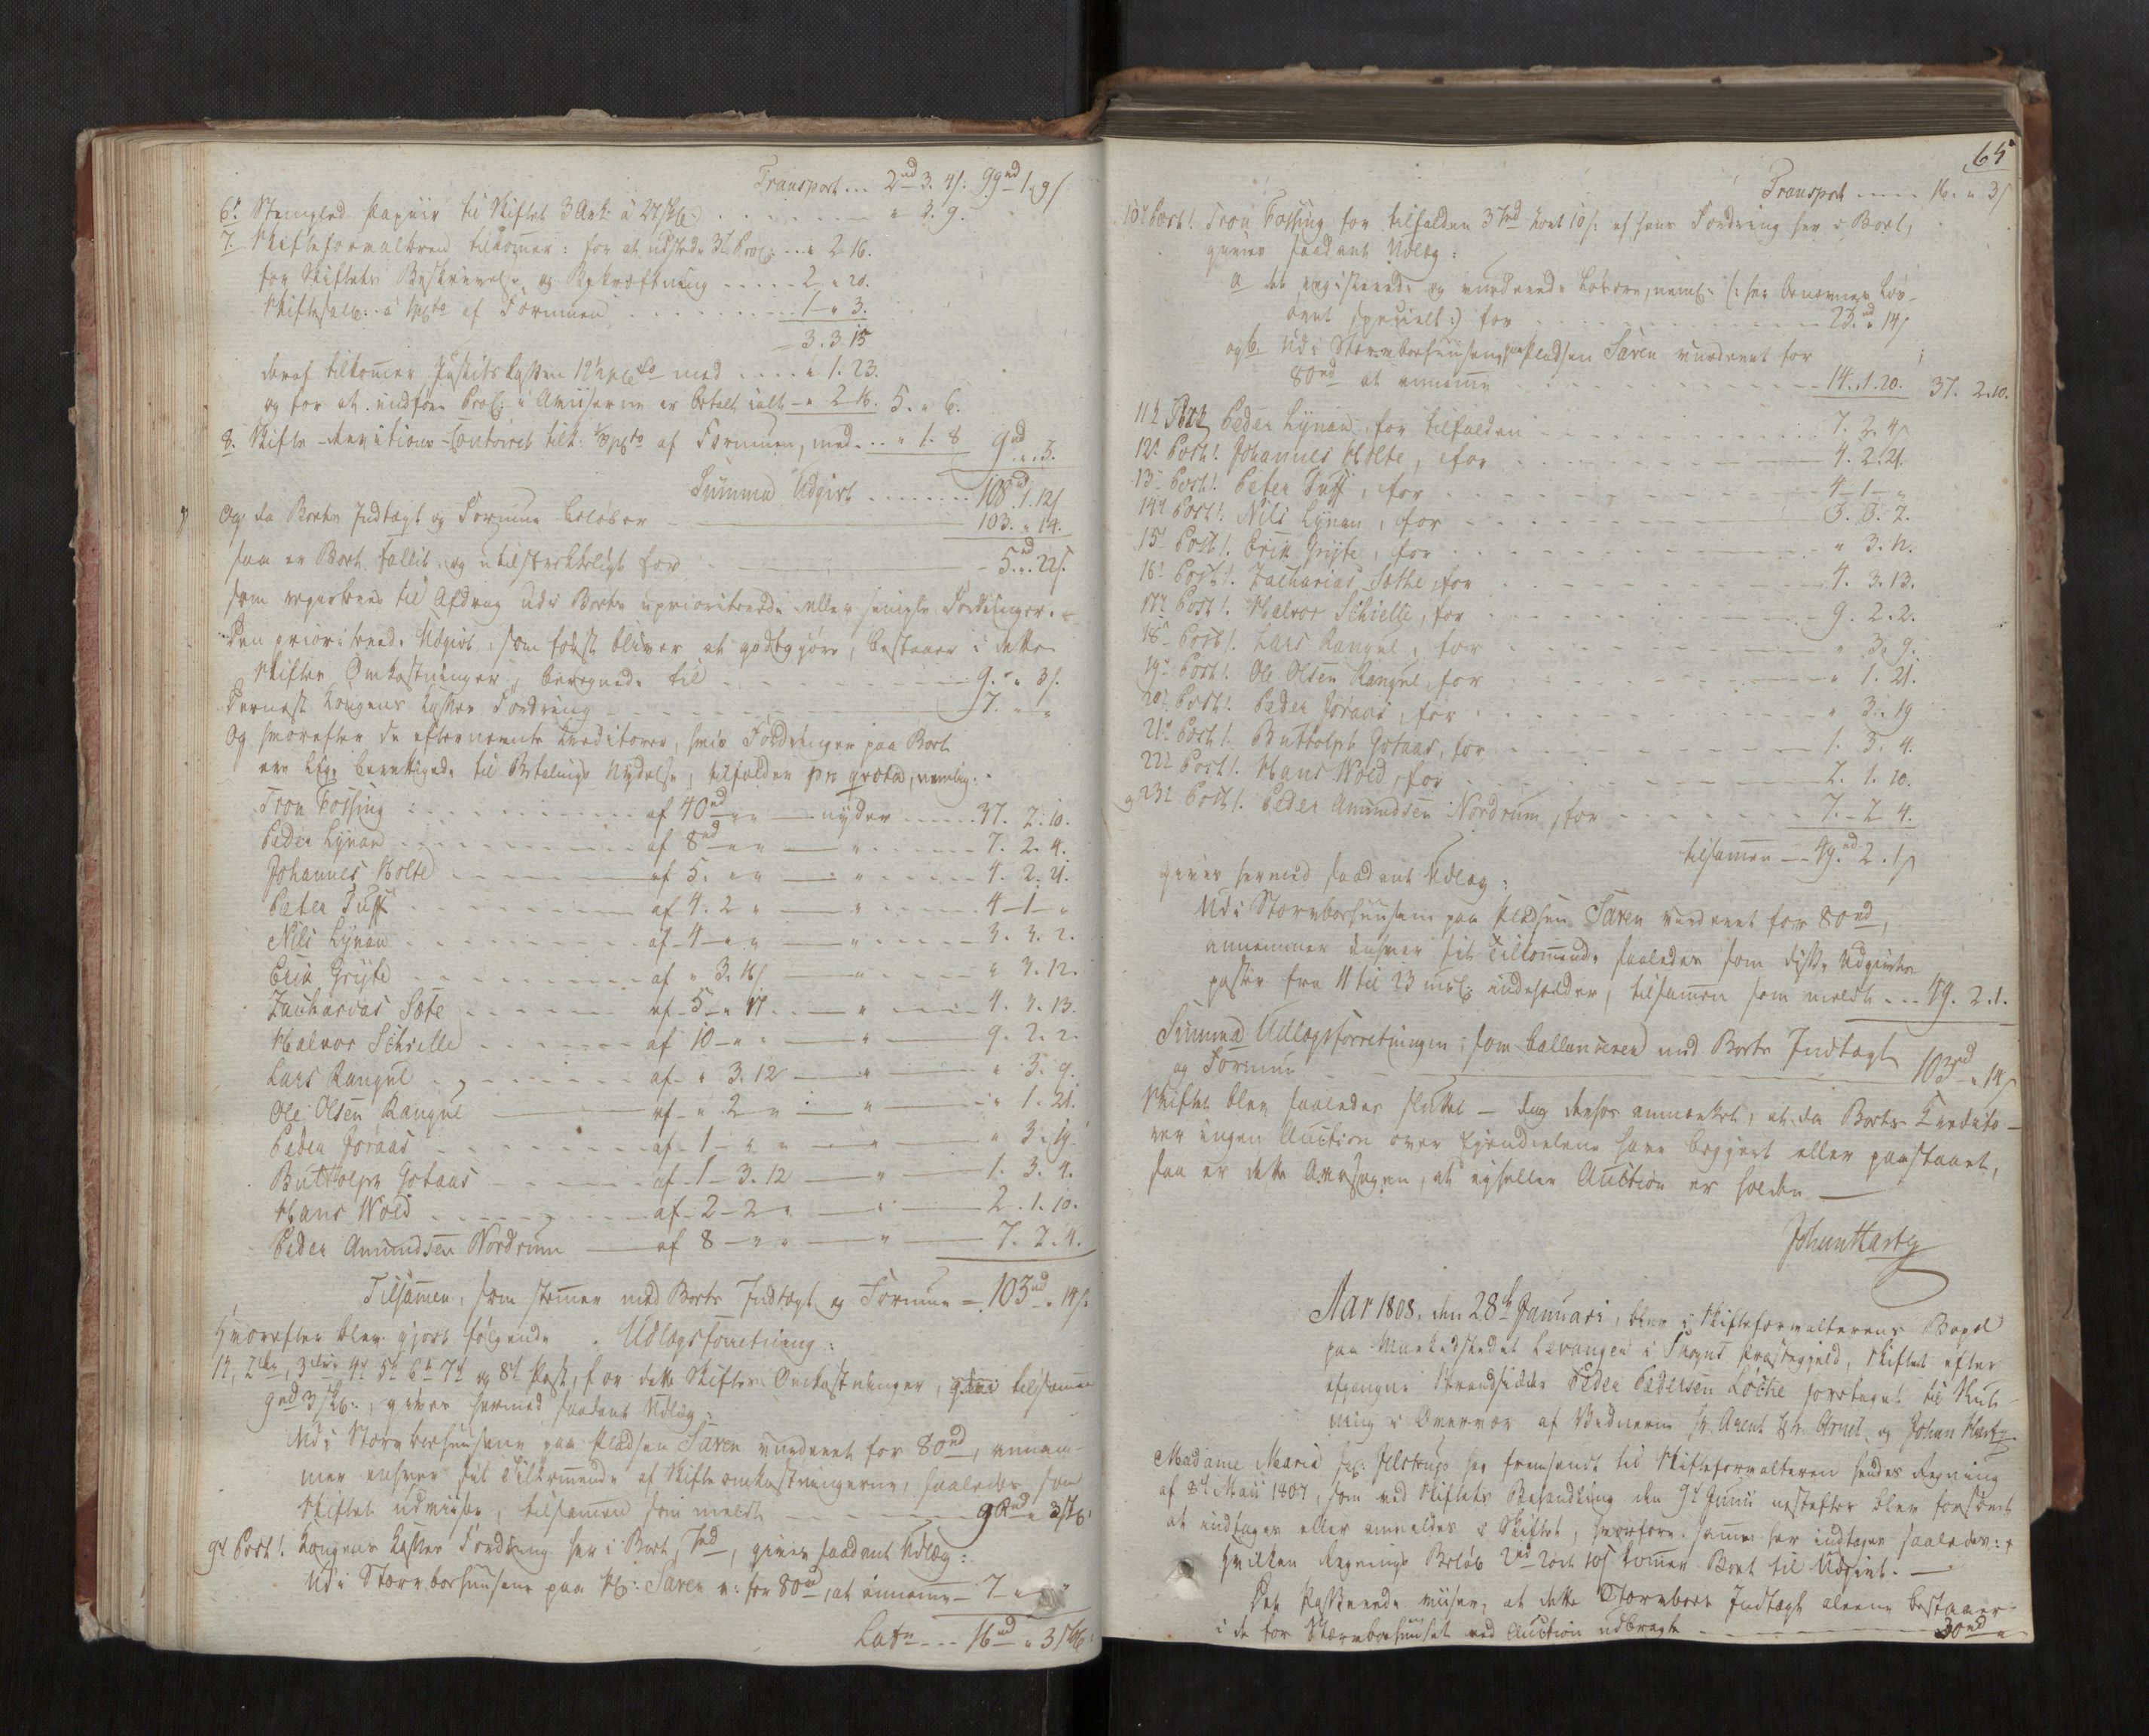 Transport ... 2rd 3. 4s: 99rd 1. 9s
6t Stempled Papiir til Skiftet 3 Ark: á 27 skl: . . . . " 3. 9.
7. Skifteforvalteren tilkommer: for at udstæde 3de Procl: . . . " 2 16.
for Skiftets Beskrivelse og Bekræftning . . . . . 2 " 20.
Skiftesalær: á 1 pCto af Formuen . . . . . 1 " 3.
3. 3. 15
deraf tilkommer Justits Kassen 12½ pCto med . . . . " 1. 23.
og for at indføre Procl: i Aviserne er betalt ialt - " 2 16. 5. " 6.
8. Skifte-Revisions-Contoiret tilk: ⅓ pCto af Formuen, med . . " 1. 8 9rd " 3.
Summa Udgivt . . . . . . . 108rd 1. 12s
Og da Boets Indtægt og Formue beløber 103. " 14.
saa er Boet fallit og utilstrekkeligt for 5rd " 22s.
som reparteres til Afdrag udi Boets uprioriterede eller simple Fordringer.
Den prioriterede Udgivt, som først bliver at godtgjøre, bestaaer i dette
Skiftes Omkostninger, beregnede til 9. " 3s.
Dernæst Kongens Kasses Fordring 7. " "
Og hvorefter de efternevnte Creditorer, hvis Fordringer paa Boet
ere lige berettigede til Betalings Nydelse, tilfalder pro qvota, nemlig:
Tron Fossing af 40rd " " nyder 37. 2. 10.
Peder Lynan af 8rd " " " 7. 2. 4.
Johannes Holte af 5. " " " 4. 2. 21.
Peter Tuff af 4. 2 " " 4 - 1 - "
Nils Lynan af 4 " " " 3. 3. 2.
Erik Gryte af " 3. 16s " " 3. 12.
Zacharias Sæte af 5 " 17 " 4. 3. 13.
Halvor Schielle af 10 " " " 9. 2. 2.
Lars Rangul af " 3. 12 " " 3. 9.
Ole Olsen Rangul af " 2 " " " 1. 21.
Peder Joraas af 1 " " " " 3. 19.
Buttolph Gotaas af 1 - 3. 12 " 1. 3. 4.
Hans Wold af 2 - 2 " " 2. 1. 10.
Peder Amundsen Nordrum af 8 " " " 7. 2. 4.
Tilsamen, som stemmer med Boets Indtægt og Formue = 103rd " 14s.
Hvorefter blev gjort følgende Udlægsforretning:
1t, 2den, 3die 4t 5t 6t 7t og 8t Post, for dette Skiftes Omkostninger, tilsamen
9rd 3 skl:, gives hermed saadant Udlæg:
Udi Størrboehuusene paa Pladsen Saren vurderet for 80rd, annam-
mer enhver sit Tilkommende af Skifteomkostningerne, saaledes som
Skiftet udviiser, tilsammen som meldt 9rd " 3 skl.
9t Post! Kongens Kasses Fordring her i Boet, 7rd, gives saadant Udlæg:
Udi Størrboehuusene paa Pl: Saren v: for 80rd, at annamme 7 " "
Lats . . . 16rd " 3 skl:
65
Transport . . . . 16. " 3s
10de Post! Tron Fossing for tilfalden 37rd 2ort 10s. af hans Fordring her i Boet,
gives saadant Udlæg:
a de registrerede og vurderede Løsøre, neml: (: her benevnes Løs-
øret specielt :) for 23rd " 14s
og b. Udi Størrboehuusene paa Pladsen Saren vurderet for
80rd at annamme 14. 1. 20. 37. 2. 10.
11te Post Peder Lynan for tilfalden 7. 2. 4s
12t Post! Johannes Holte, for 4. 2. 21.
13t Post! Peter Tuff, for 4 - 1 - "
14t Post! Nils Lynan, for 3. 3. 2.
15t Post! Erik Gryte, for " 3. 12.
16t Post! Zacharias Sæthe, for 4. 3. 13.
17t Post! Halvor Schielle, for 9. 2. 2.
18t Post! Lars Rangul, for " 3. 9.
19t Post! Ole Olsen Rangul, for " 1. 21.
20t Post! Peder Joraas, for " 3. 19
21t Post! Buttolph Gotaas, for 1. 3. 4.
22t Post! Hans Wold, for 2. 1. 10.
og 23t Post! Peder Amundsen Nordrum, for 7. 2 4.
tilsamen 49rd 2. 1s
gives hermed saadant Udlæg:
Udi Størrboehuusene paa Pladsen Saren vurderet for 80rd,
annammer enhver sit Tilkommende saaledes som disse Udgivts
poster fra 11 til 23 incl: indeholder, tilsamen som meldt . . . 49. 2. 1.
Summa Udlægsforretningen, som ballancerer med Boets Indtægt
og Formue 103rd " 14s
Skiftet blev saaledes sluttet — dog derhos anmerket, at da Boets Credito-
rer ingen Auction over Ejendelene have begjert eller paastaaet,
saa er dette Aarsagen, at ejheller Auction er holden —
Johan Hartz
Aar 1808, den 28de Januari, blev i Skifteforvalterens Bopæl
paa Markedstedet Levanger i Skogns Præstegjeld, Skiftet efter
afgangne Strandsidder Peder Pedersen Løche foretaget til Slut-
ning i Overvær af Vidnerne Hr Arent Arndt og Johan Hartz.
Madame Maria sal: Jelstrups har fremsendt til Skifteforvalteren hendes Regning
af 8de Maii 1807, som ved Skiftets Behandling den 9t Junii nestefter blev forsømt
at indtages eller anmeldes i Skiftet, hvorfore samme her indtages saaledes:
hvilken Regnings Beløb 2rd 2ort 10s kommer Boet til Udgivt. —
Det Passerede viiser, at dette Størrboes Indtægt aleene bestaaer
i de for Størrboehuuset ved Auction udbragte 30rd "